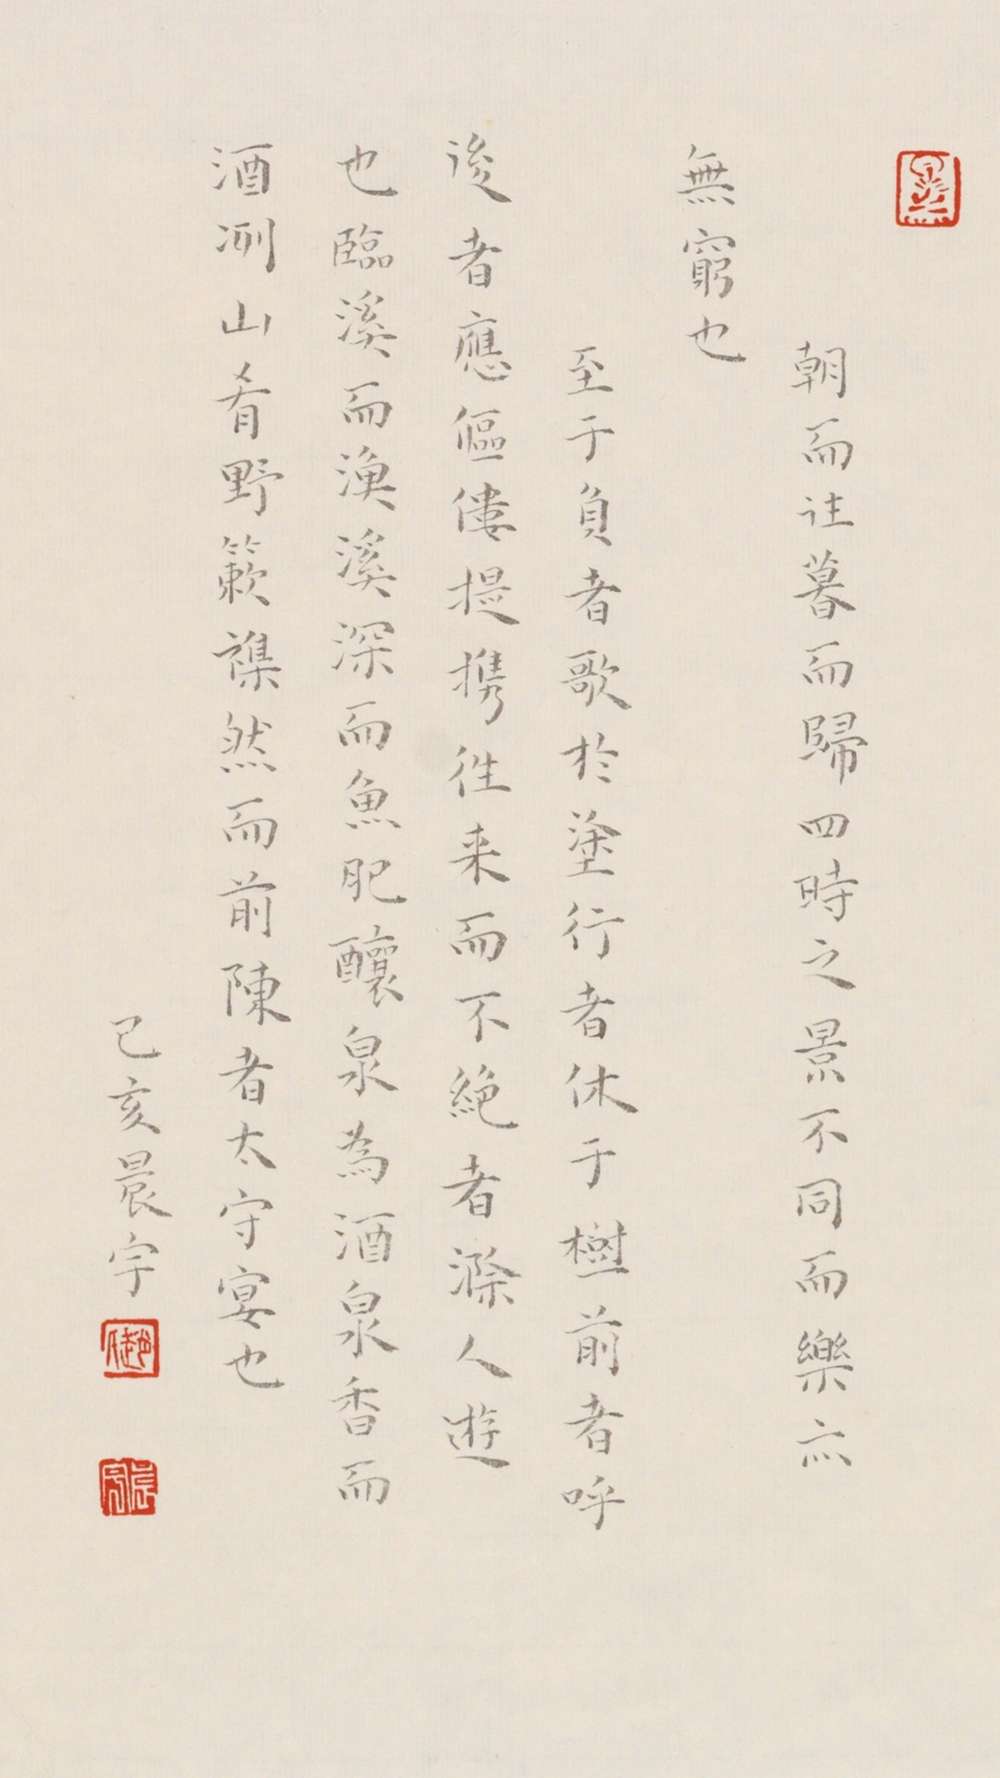 朝而往暮而歸四時之景不同而樂亦
無窮也
至于負者歌於塗行者休于樹前者呼
後者應傴僂提攜往来而不絶者滁人遊
也臨溪而漁溪深而魚肥釀泉為酒泉香而
酒洌山肴野蔌襍然而前陳者太守宴也
己亥晨宇